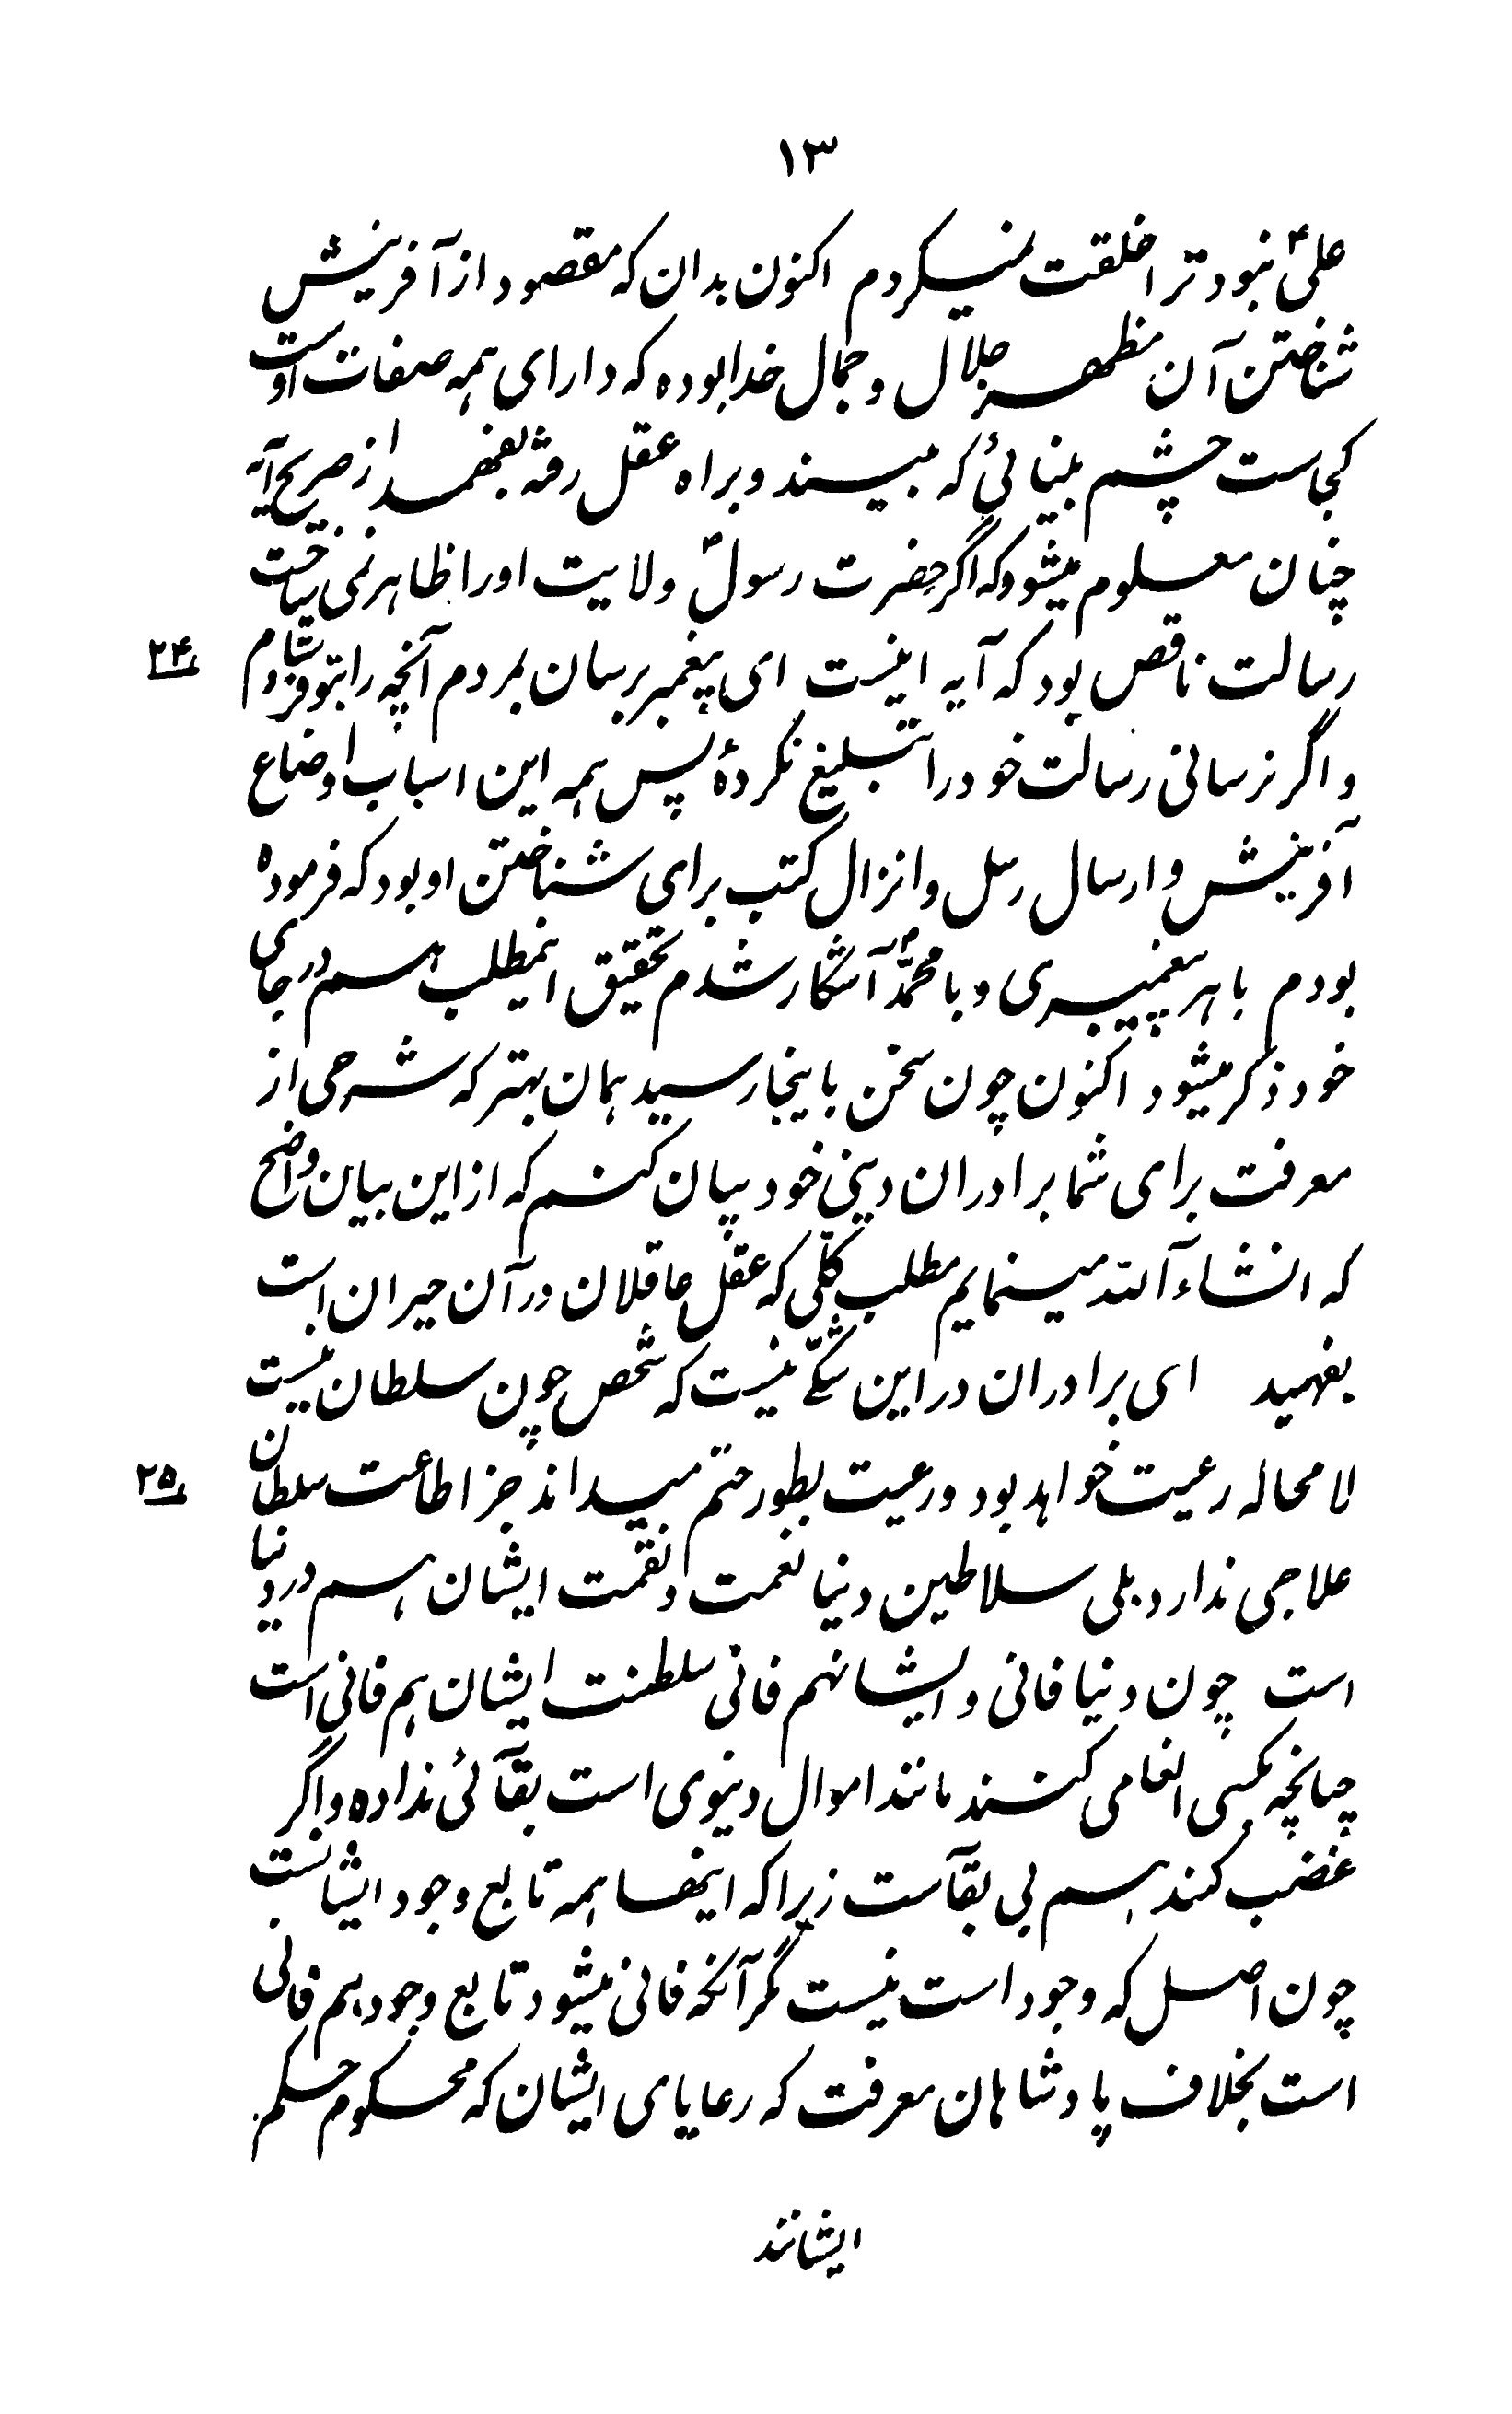 ۱۳
علیؑ نبود ترا خلقت نمیکردم اکنون بدان که مقصود از آفرینش
شناختن آن مظهر جلال و جمال خدا بوده که دارای همه صفات اوست
کجاست چشم بینائی که ببیند و براه عقل رفته بفهمد از صریح آیه
چنان معلوم میشود که اگر حضرت رسولؐ ولایت او را ظاهر نمی ساخت
رسالت ناقص بود که آیه اینست ای پیغمبر برسان بمردم آنچه را بتو فرستادم
۲۴
و اگر نرسانی رسالت خود را تبلیغ نکردۀ پس همه این اسباب اوضاع
آفرینش و ارسال رسل و انزال کتب برای شناختن او بود که فرموده
بودم با هر پیغمبری و با محمّدؐ آشکار شدم تحقیق اینمطلب هم در جای
خود ذکر میشود اکنون چون سخن باینجا رسید همان بهتر که شرحی از
معرفت برای شما برادران دینی خود بیان کنم که از این بیان واضح
که انشاءآلله مینمایم مطلب کلّی که عقل عاقلان در آن حیران است
بفهمید ای برادران در این شکّی نیست که شخص چون سلطان نیست
لامحاله رعیت خواهد بود و رعیت بطور حتم میداند جز اطاعت سلطان
۲۵
علاجی ندارد بلی سلاطین دنیا نعمت و نقمت ایشان هم در دنیا
است چون دنیا فانی و ایشانهم فانی سلطنت ایشان هم فانی است
چنانچه بکسی انعامی کنند مانند اموال دنیوی است بقآئی نداده و اگر
غضب کند هم بی بقآست زیرا که اینها همه تابع وجود ایشانست
چون اصل که وجود است نیست مگر آنکه فانی میشود تابع وجود هم فانی
است بخلاف پادشاهان معرفت که رعایای ایشان که محکوم حکم
ایشانند